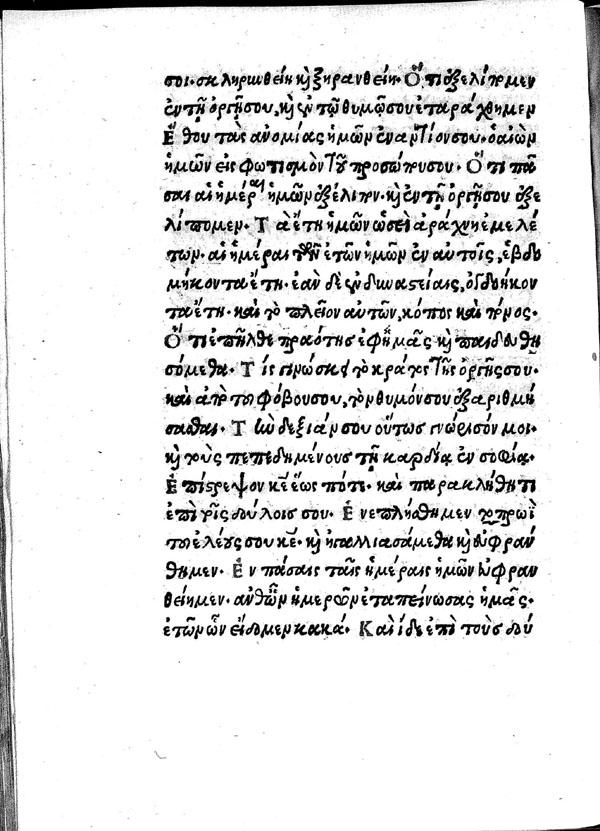 σοι· σκληρωθείη καὶ ξηρανθείη· Ὅτι ἐξελίπομεν
ἐν τῇ ὀργῇ σου, καὶ ἐν τῷ θυμῷ σου ἐταράχθημεν
Ἔθου τὰς ἀνομίας ἡμῶν ἐναντίον σου· ὁ αἰὼν
ἡμῶν εἰς φωτισμὸν τοῦ προσώπου σου· Ὅτι πᾶ
σαι αἱ ἡμέραι ἡμῶν ἐξέλιπον· καὶ ἐν τῇ ὀργῇ σου ἐξε
λίπομεν· Τὰ ἔτη ἡμῶν ὡσεὶ ἀράχνη ἐμελέ
των· αἱ ἡμέραι τῶν ἐτῶν ἡμῶν ἐν αὐτοῖς, ἑβδο
μήκοντα ἔτη· ἐὰν δὲ ἐν δυναστείαις, ὀγδοήκον
τα ἔτη· καὶ τὸ πλεῖον αὐτῶν, κόπος καὶ πόνος·
Ὅτι ἐπῆλθε πραότης ἐφ' ἡμᾶς καὶ παιδευθη
σόμεθα· Τίς γινώσκει τὸ κράτος τῆς ὀργῆς σου·
καὶ ἀπὸ τοῦ φόβου σου, τὸν θυμόν σου ἐξαριθμή
σασθαι· Τὴν δεξιάν σου οὕτως γνώρισόν μοι·
καὶ τοὺς πεπεδημένους τῇ καρδίᾳ ἐν σοφίᾳ·
Ἐπίστρεψον κε̄ ἕως πότε· καὶ παρακλήθητι
ἐπὶ τοῖς δούλοις σου· Ἐνεπλήσθημεν τοπρωῒ
τοῦ ἐλέους σου κε̄· καὶ ἠγαλλιασάμεθα καὶ εὐφράν
θημεν· Ἐν πάσαις ταῖς ἡμέραις ἡμῶν εὐφραν
θείημεν· ἀνθ' ὧν ἡμερῶν ἐταπείνωσας ἡμᾶς·
ἐτῶν ὧν εἴδομεν κακά· Καὶ ἴδε ἐπὶ τοὺς δού